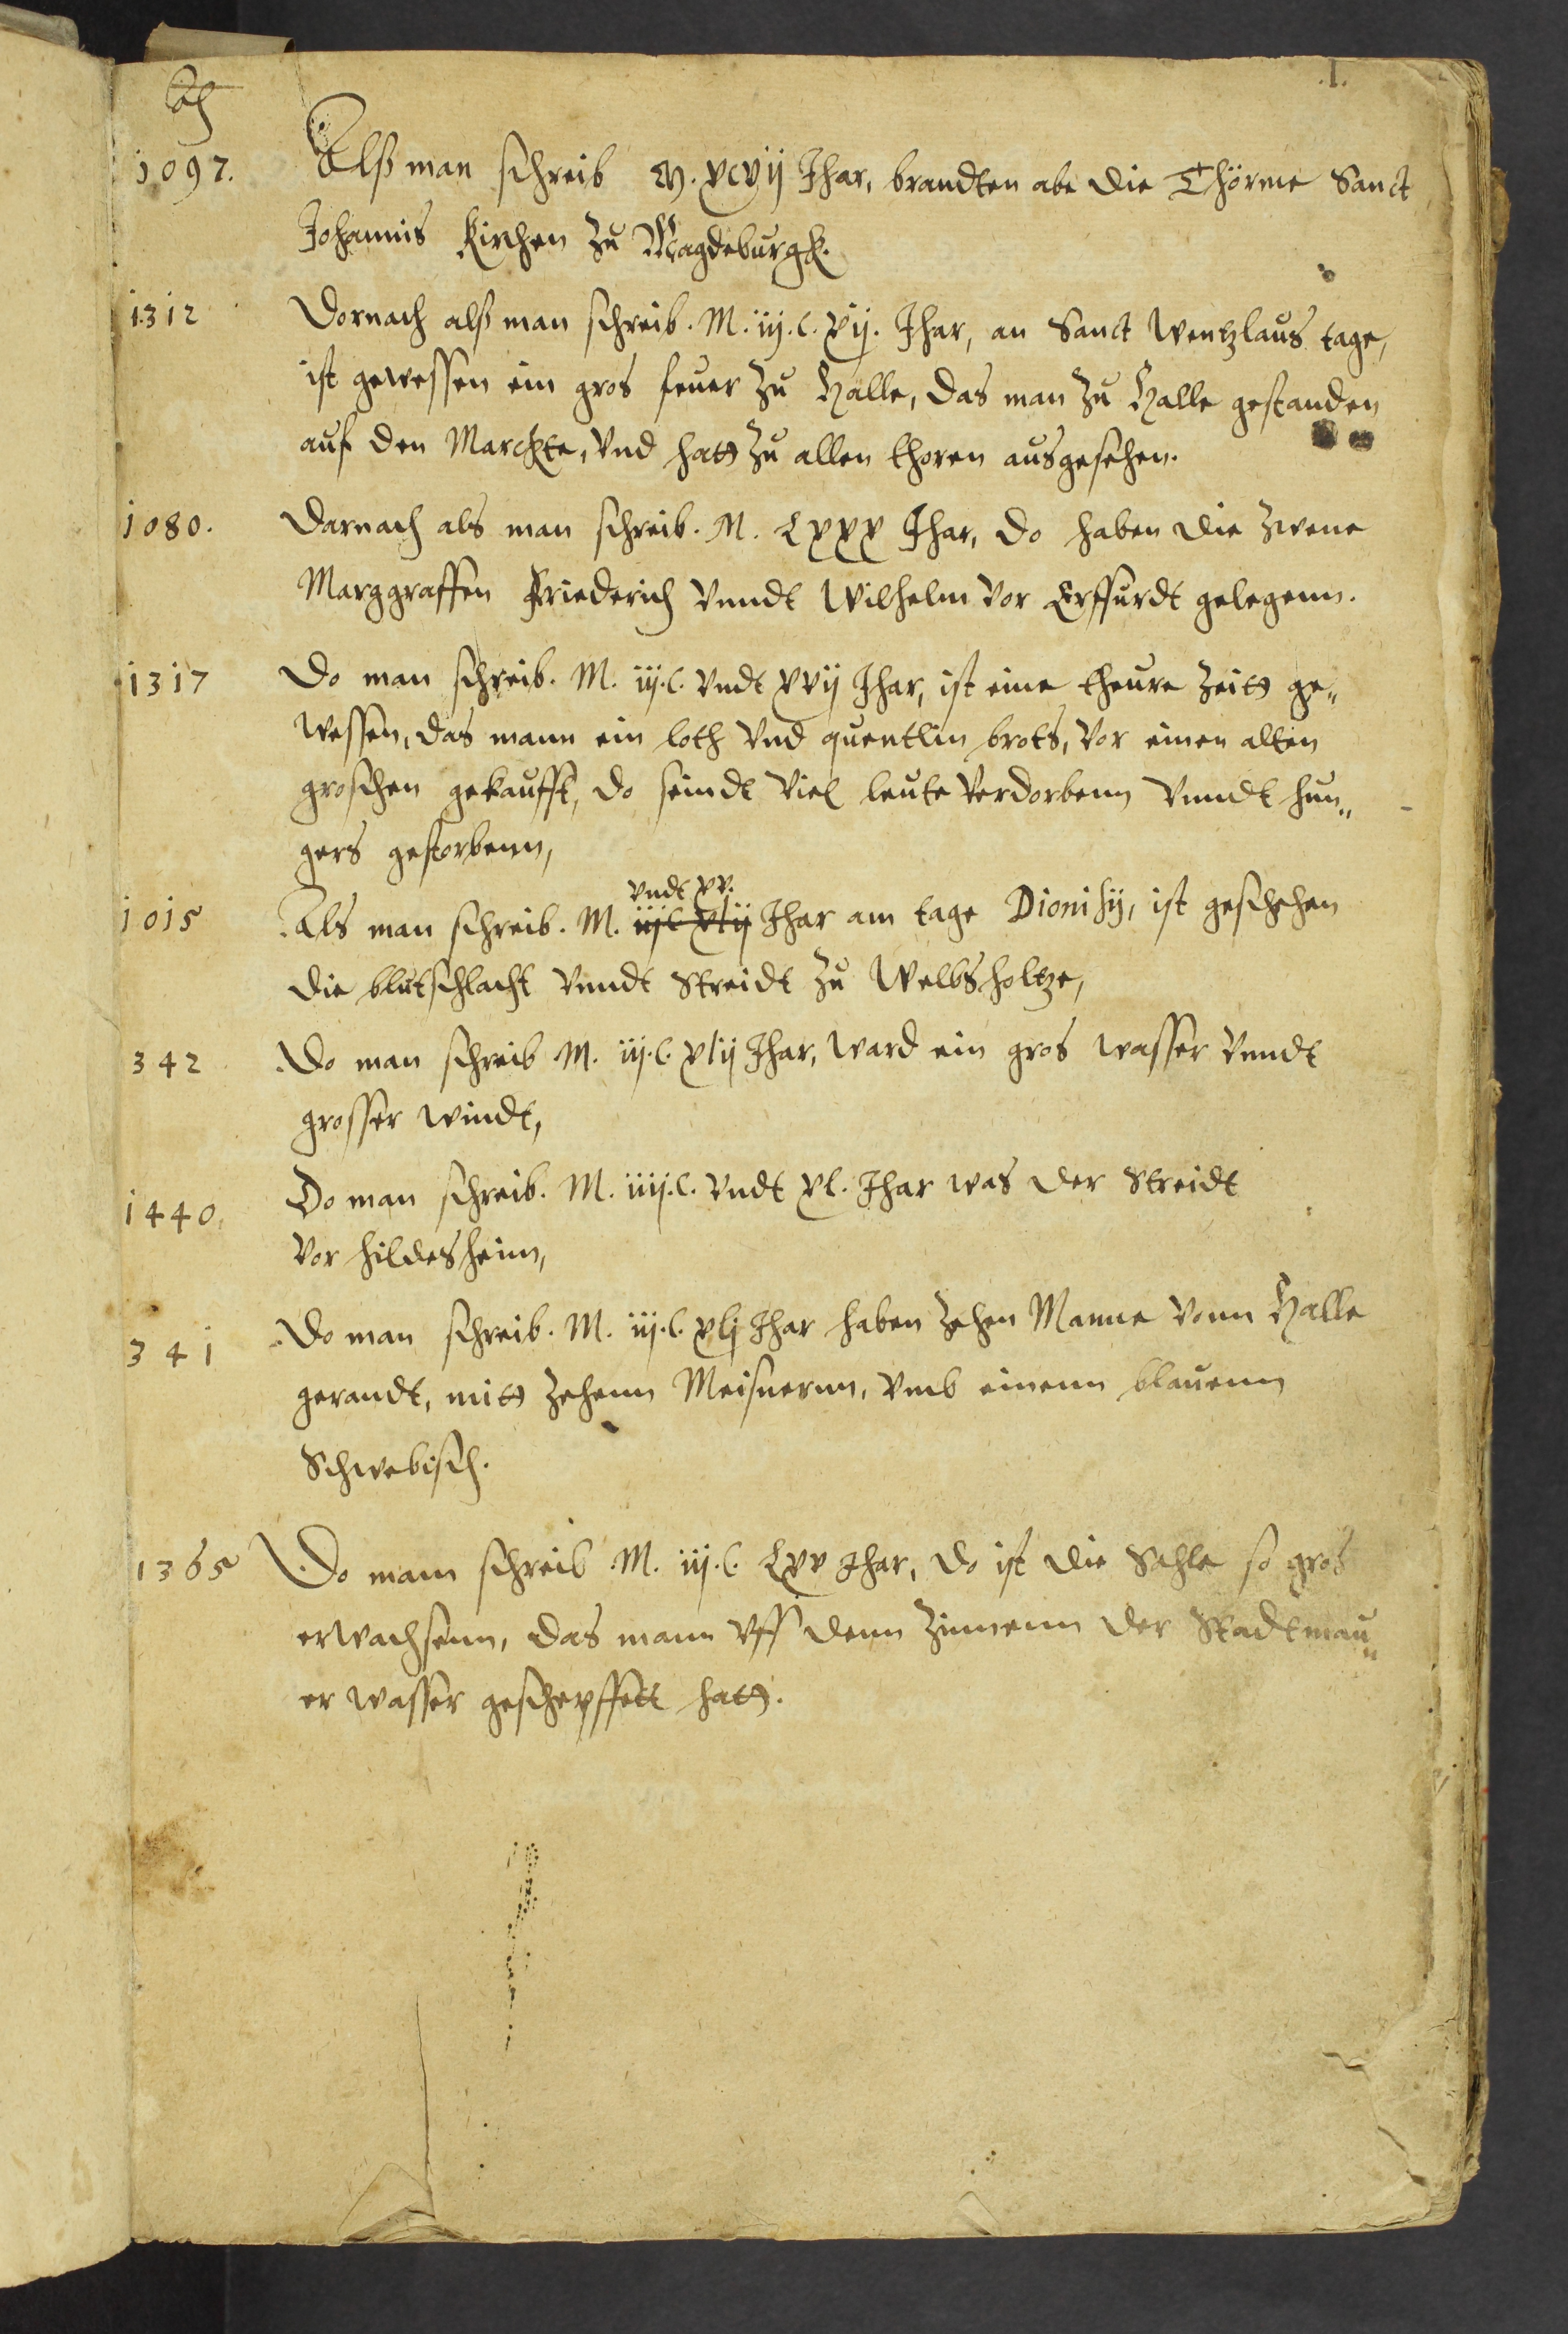 .1.
1097. Alß man schreib M. xcvij Jhar, brandten abe die Thörme Sanct
Johannis kirchen zu Magdeburgk.
1312 Dornach alß man schreib. M. iij. c. xij. Jhar, an Sanct Wentzlaus tage,
ist gewessen ein gros feuer zu Halle, das man zu Halle gestanden
auf den Marckte, vnd hatt zu allen thoren ausgesehen.
1080. Darnach als man schreib. M. Lxxx Jhar, do haben die zwene
Marggraffen Friederich vnndt Wilhelm vor Erffurdt gelegenn.
1317 Do man schreib. M. iij. c. vndt xvij Jhar, ist eine theure Zeitt ge„
wessen, das mann ein loth vnd quentlin brots, vor einen alten
groschen gekaufft, do seindt viel leute verdorbenn vnndt hun„
gers gestorbenn,
vndt xv.
1015 Als man schreib. M. iij c xlij Jhar am tage Dionisij, ist geschehen
die blutschlacht vnndt Streidt zu Welbsholtze,
342 Do man schreib M. iij. c. xlij Jhar, ward ein gros wasser vnndt
grosser windt,
1440. Do man schreib. M. iiij. c. vndt xl. Jhar was der Streidt
vor hildesheim,
341 Do man schreib. M. iij. c. xlj Jhar haben zehen Manne vonn Halle
gerandt, mitt zehenn Meisnernn, vmb einenn blauenn
Schwebisch.
1365 Do mann schreib M. iij. c. Lxv Jhar, do ist die Sahle so gros
erwachsenn, das mann vff denn Zinnenn der Stadtmau„
er wasser geschepffett hatt.